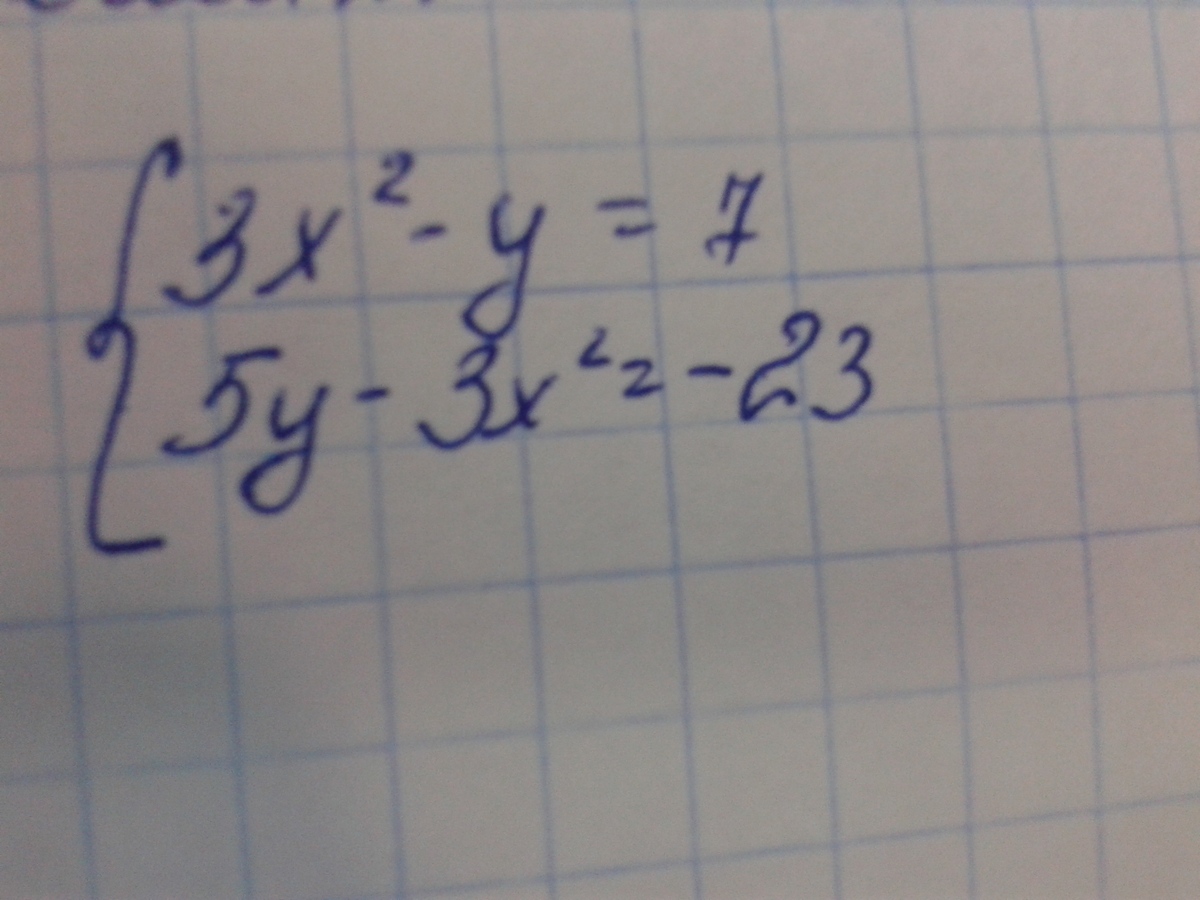 3x² - y = 7
5y - 3x² = -23